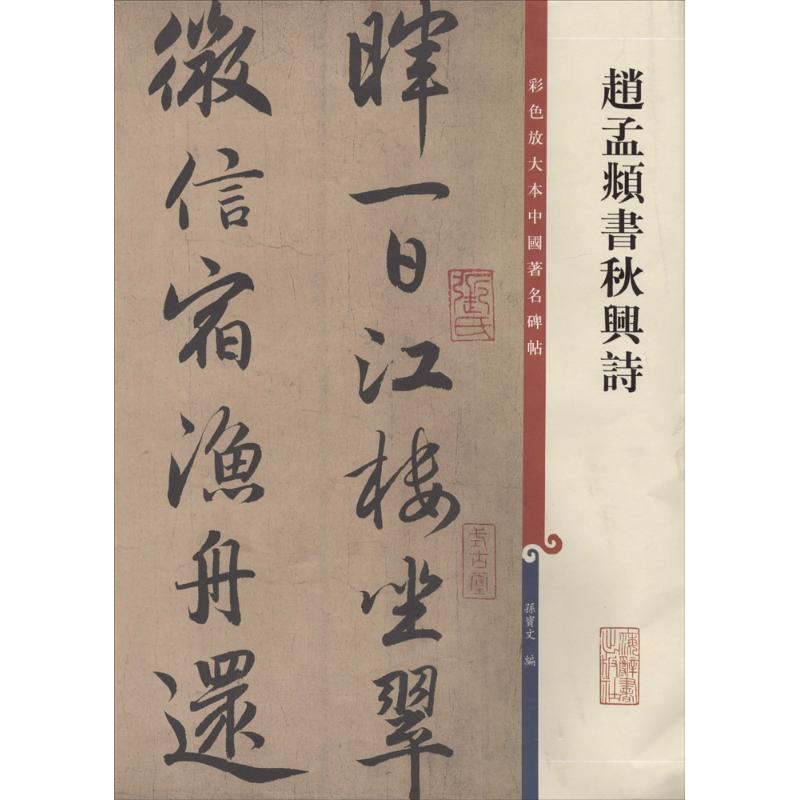 趙孟頫書秋興詩
彩色放大本中國著名碑帖
孫寶文 編
暉一日江樓坐翠
微信宿漁舟還